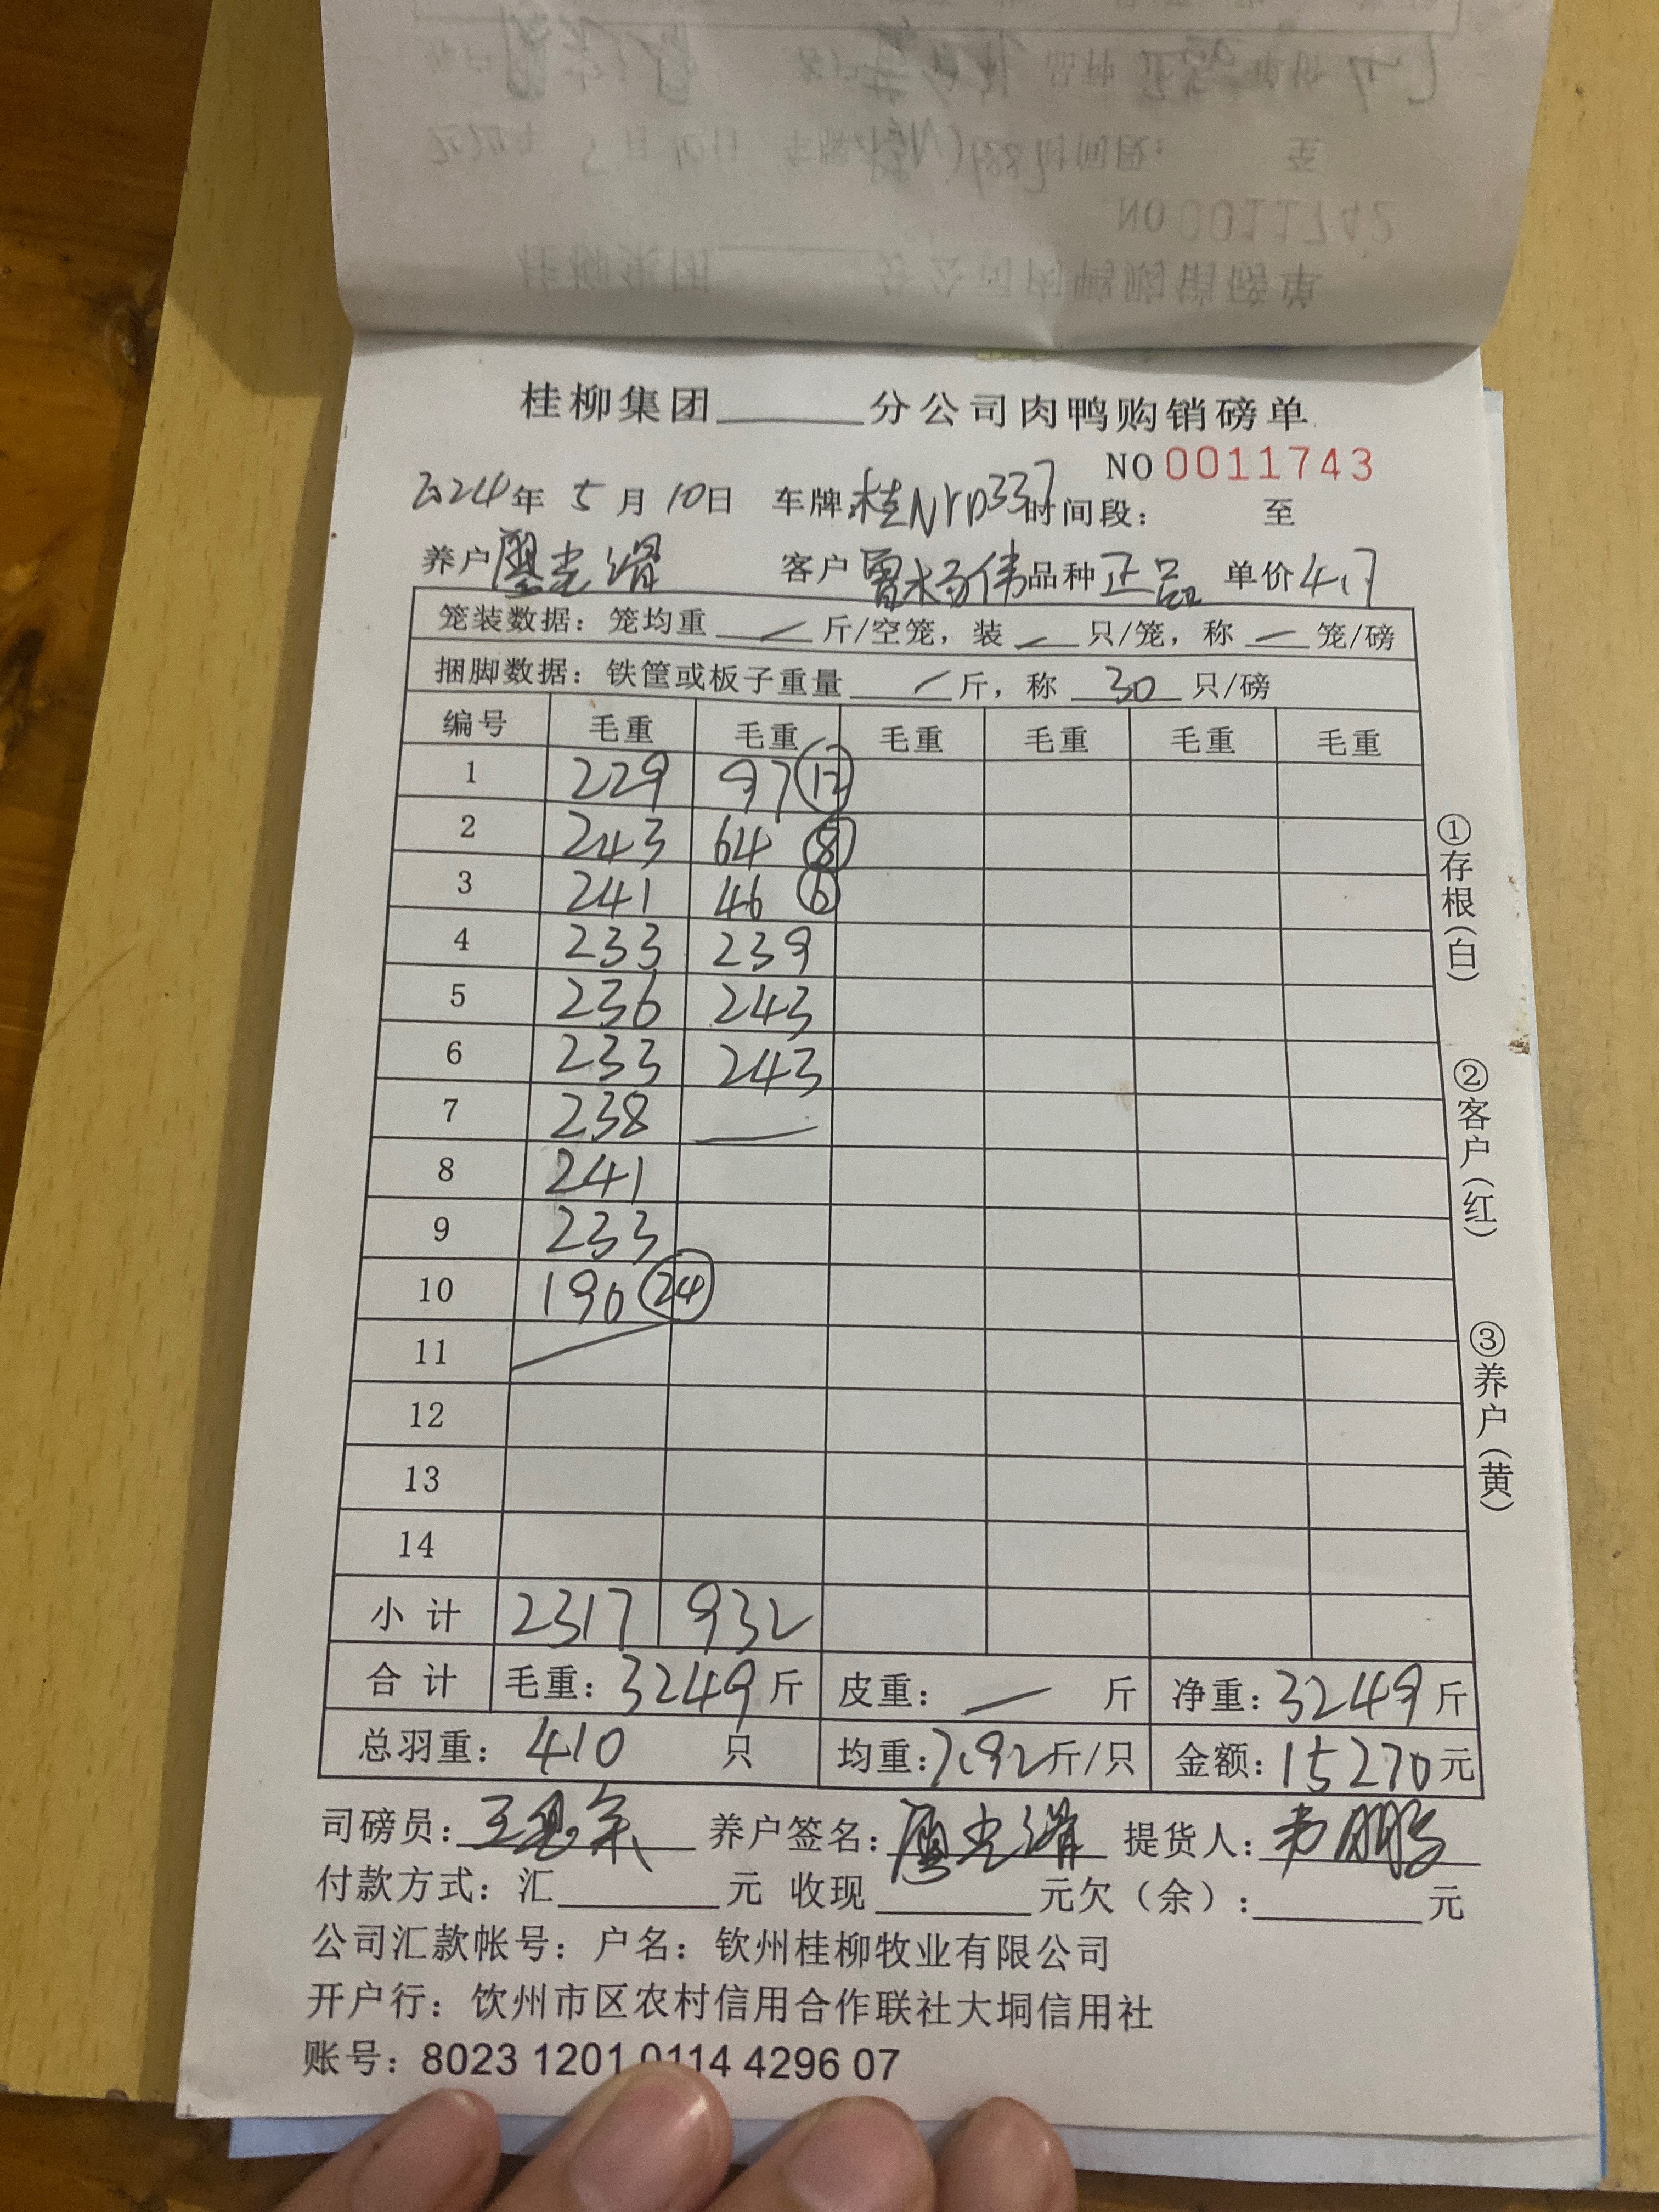 桂柳集团______分公司肉鸭购销磅单
NO 0011743
2024年 5月 10日 车牌:桂NYD337 时间段: 至
养户 廖光滑 客户 曾杨伟 品种 正品 单价 4.7
笼装数据：笼均重 — 斤/空笼，装 — 只/笼，称 — 笼/磅
捆脚数据：铁筐或板子重量 — 斤，称 30 只/磅
编号 毛重 毛重 毛重 毛重 毛重 毛重
1 229 97 ⑫
2 243 64 ⑧
3 241 46 ⑥
4 233 239
5 236 243
6 233 243
7 238 —
8 241
9 233
10 190 ㉔
11
12
13
14
小计 2317 932
合计 毛重：3249斤 皮重：— 斤 净重：3249斤
总羽重：410 只 均重：7.92斤/只 金额：15270元
司磅员： 养户签名：廖光滑 提货人：
付款方式：汇______元 收现______元欠（余）：______元
公司汇款帐号：户名：钦州桂柳牧业有限公司
开户行：饮州市区农村信用合作联社大垌信用社
账号：8023 1201 0114 4296 07
①存根（白）
②客户（红）
③养户（黄）